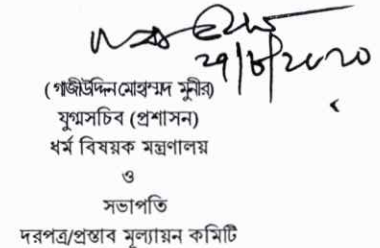 ২৭/৮/২০২০
(গাজীউদ্দিন মোহাম্মদ মুনীর)
যুগ্মসচিব (প্রশাসন)
ধর্ম বিষয়ক মন্ত্রণালয়
ও
সভাপতি
দরপত্র/প্রস্তাব মূল্যায়ন কমিটি